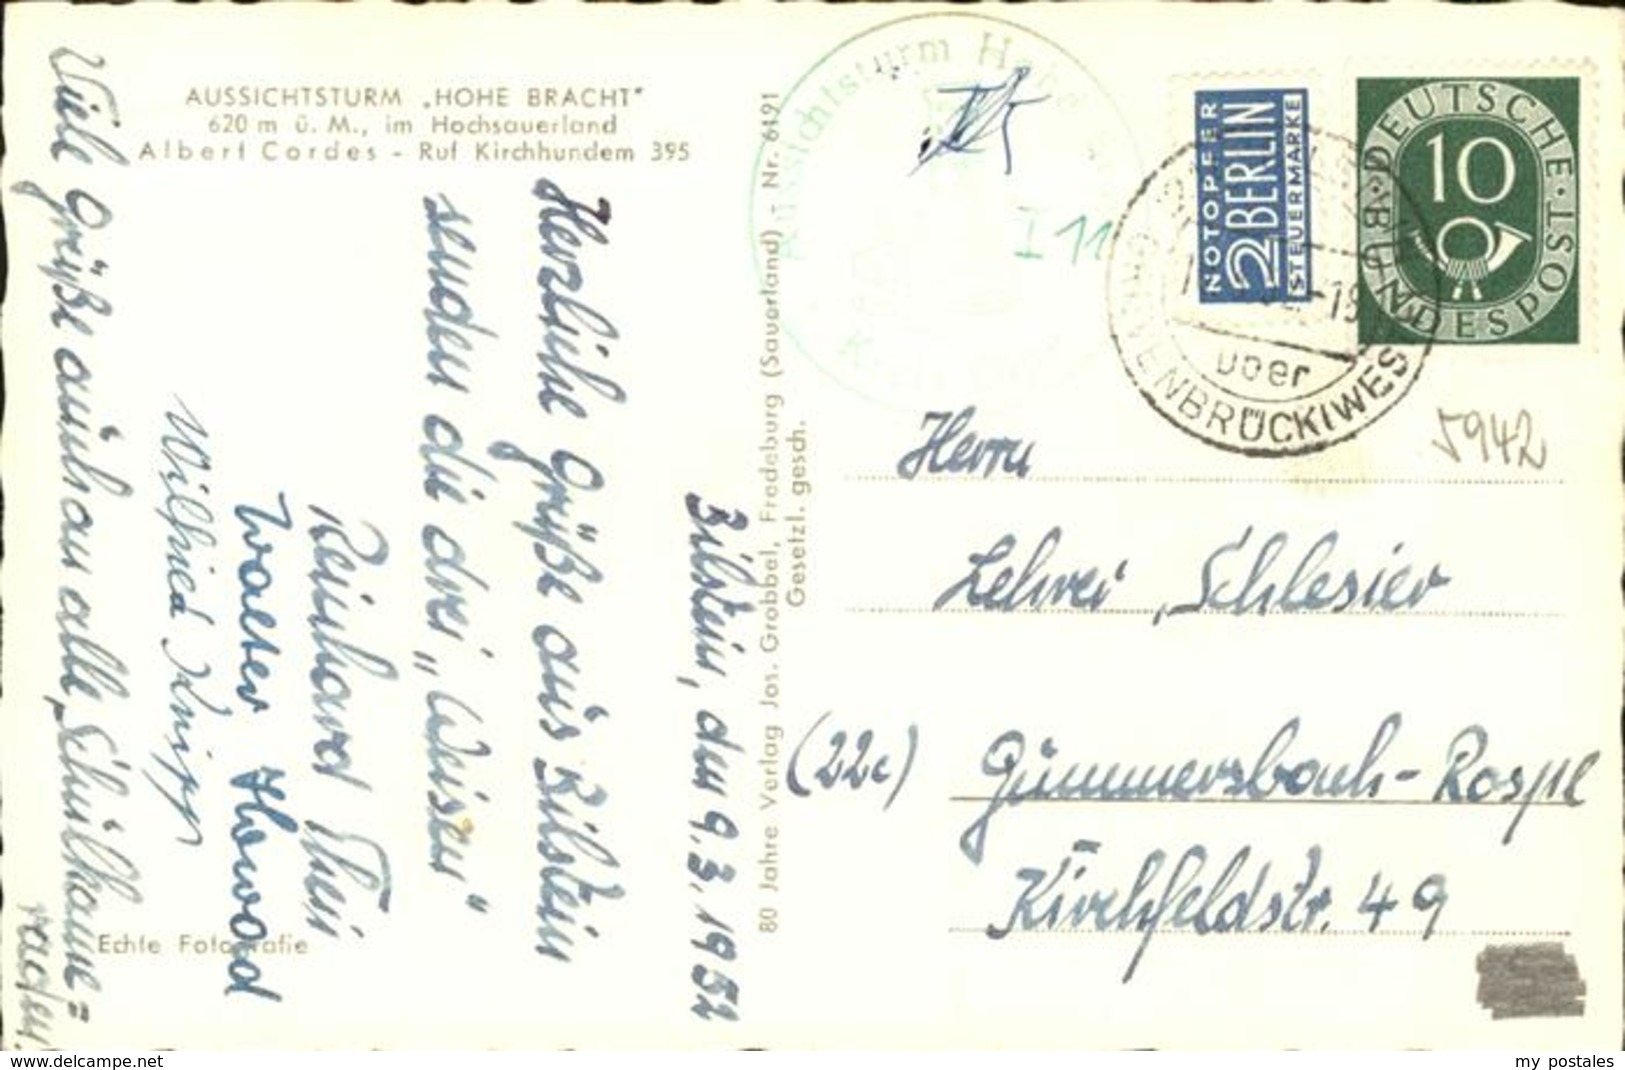 AUSSICHTSTURM „HOHE BRACHT"
620 m ü. M., im Hochsauerland
Albert Cordes - Ruf Kirchhundem 395
Bilstein, den 9.3.1952
Herzliche Grüße aus Bilstein
senden die drei „Weisen"
Reinhard Thein
Walter Howard
Wilfried Knipp
Viele Grüße auch an alle „Schulkame=
raden.
Echte Fotografie
80 Jahre Verlag Jos. Grobbel, Fredeburg (Sauerland) - Nr. 6191
Gesetzl. gesch.
Aussichtsturm Hohe
I 11
NOTOPFER
2 BERLIN
STEUERMARKE
DEUTSCHE · BUNDESPOST ·
10
über
GREVENBRÜCK(WESTF
5942
Herrn
Lehrer Schlesier
(22c) Gummersbach-Rospe
Kirchfeldstr. 49
www.delcampe.net
my postales